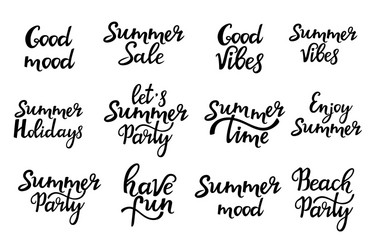 Good
mood
Summer
Sale
Good
Vibes
Summer
Vibes
Summer
Holidays
let's
Summer
Party
Summer
time
Enjoy
Summer
Summer
Party
have
fun
Summer
mood
Beach
Party